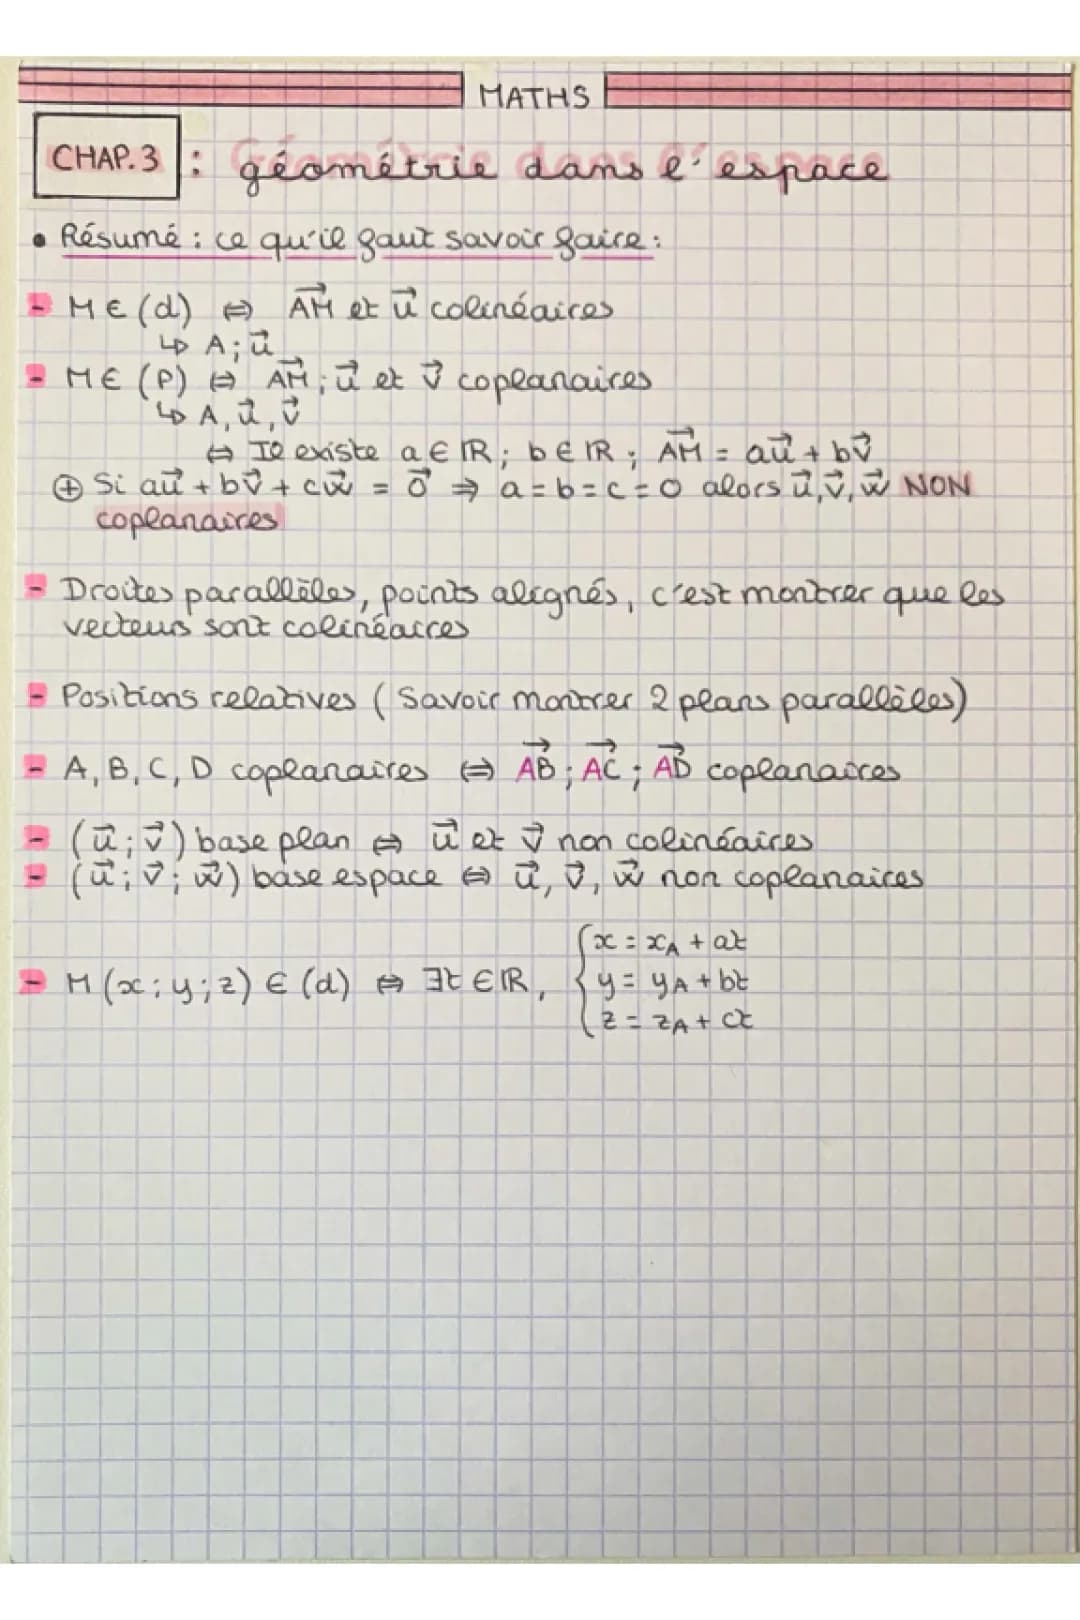 MATHS
CHAP.3 : géométrie dans l'espace
• Résumé : ce qu'il faut savoir faire :
- M ∈ (d) ⇔ \vec{AM} et \vec{u} colinéaires
↳ A ; \vec{u}
- M ∈ (P) ⇔ \vec{AM} ; \vec{u} et \vec{v} coplanaires
↳ A, \vec{u}, \vec{v}
⇔ Il existe a ∈ ℝ ; b ∈ ℝ ; \vec{AM} = a\vec{u} + b\vec{v}
⊕ Si a\vec{u} + b\vec{v} + c\vec{w} = \vec{0} ⇒ a = b = c = 0 alors \vec{u}, \vec{v}, \vec{w} NON
coplanaires
- Droites parallèles, points alignés, c'est montrer que les
vecteurs sont colinéaires
- Positions relatives ( Savoir montrer 2 plans parallèles)
- A, B, C, D coplanaires ⇔ \vec{AB} ; \vec{AC} ; \vec{AD} coplanaires
- (\vec{u} ; \vec{v}) base plan ⇔ \vec{u} et \vec{v} non colinéaires
- (\vec{u} ; \vec{v} ; \vec{w}) base espace ⇔ \vec{u}, \vec{v}, \vec{w} non coplanaires
- M (x ; y ; z) ∈ (d) ⇔ ∃t ∈ ℝ, { x = x_A + at
y = y_A + bt
z = z_A + ct